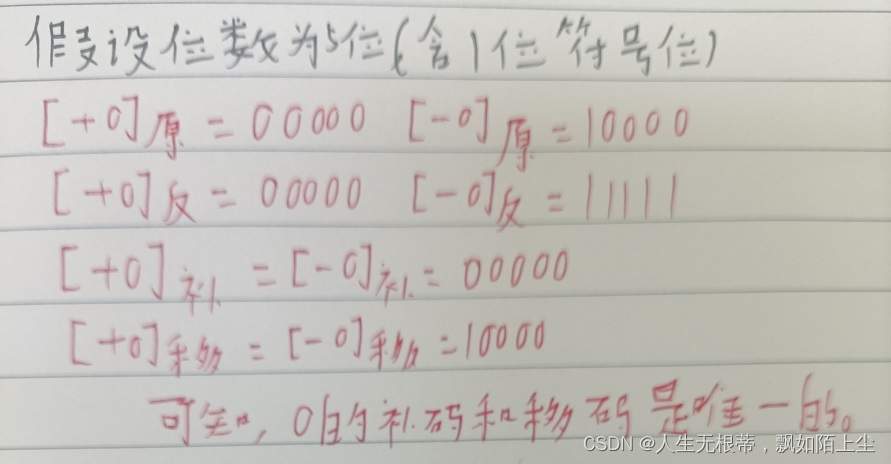 假设位数为5位(含1位符号位)
[+0]原 = 00000 [-0]原 = 10000
[+0]反 = 00000 [-0]反 = 11111
[+0]补 = [-0]补 = 00000
[+0]移 = [-0]移 = 10000
可知，0的补码和移码是唯一的。
CSDN @人生无根蒂，飘如陌上尘